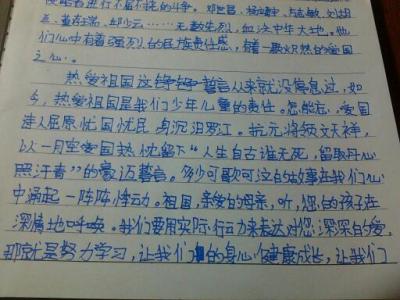 侵略者进行不屈不挠的斗争。邓世昌、杨靖宇、左志敏、刘胡
兰、董存瑞、邱少云……无数先烈，血洒中华大地。他
们心中有着强烈的民族责任感，有着一颗火炽热的爱国
之心。
热爱祖国这誓言从来就没停息过，如
今，热爱祖国是我们少年儿童的责任。怎能忘，爱国
诗人屈原忧国忧民身沉汨罗江。抗元将领文天祥，
以一身至爱国热忱留下“人生自古谁无死，留取丹心
照汗青”的豪迈誓言。多少可歌可泣的故事在我们心
中涌起一阵阵悸动。祖国，亲爱的母亲，听，您的孩子在
深情地呼唤。我们要用实际行动来表达对您深深的爱，
那就是努力学习，让我们的身心健康成长，让我们